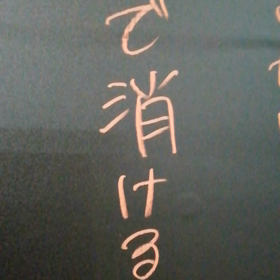 で消ける